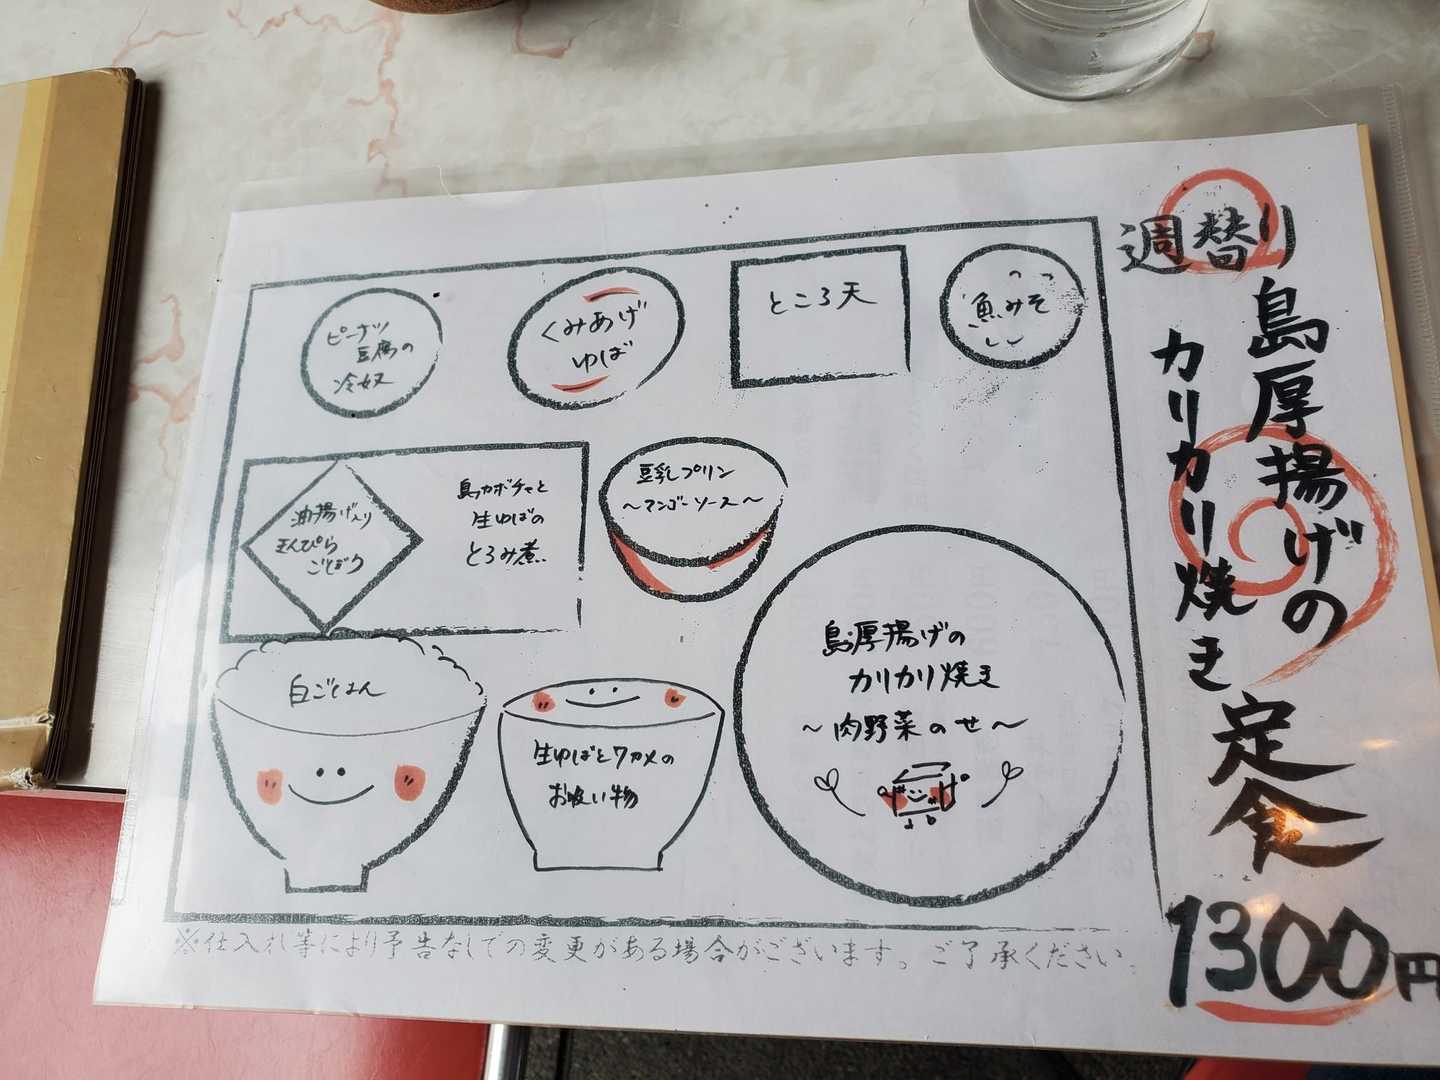 週替り
島厚揚げの
カリカリ焼き
定食
1300円
ピーナツ
豆腐の
冷奴
くみあげ
ゆば
ところ天
魚みそ
油揚げ入り
きんぴら
ごぼう
島カボチャと
生ゆばの
とろみ煮
豆乳プリン
〜マンゴーソース〜
白ごはん
生ゆばとワカメの
お吸い物
島厚揚げの
カリカリ焼き
〜肉野菜のせ〜
※仕入れ等により予告なしでの変更がある場合がございます。ご了承ください。